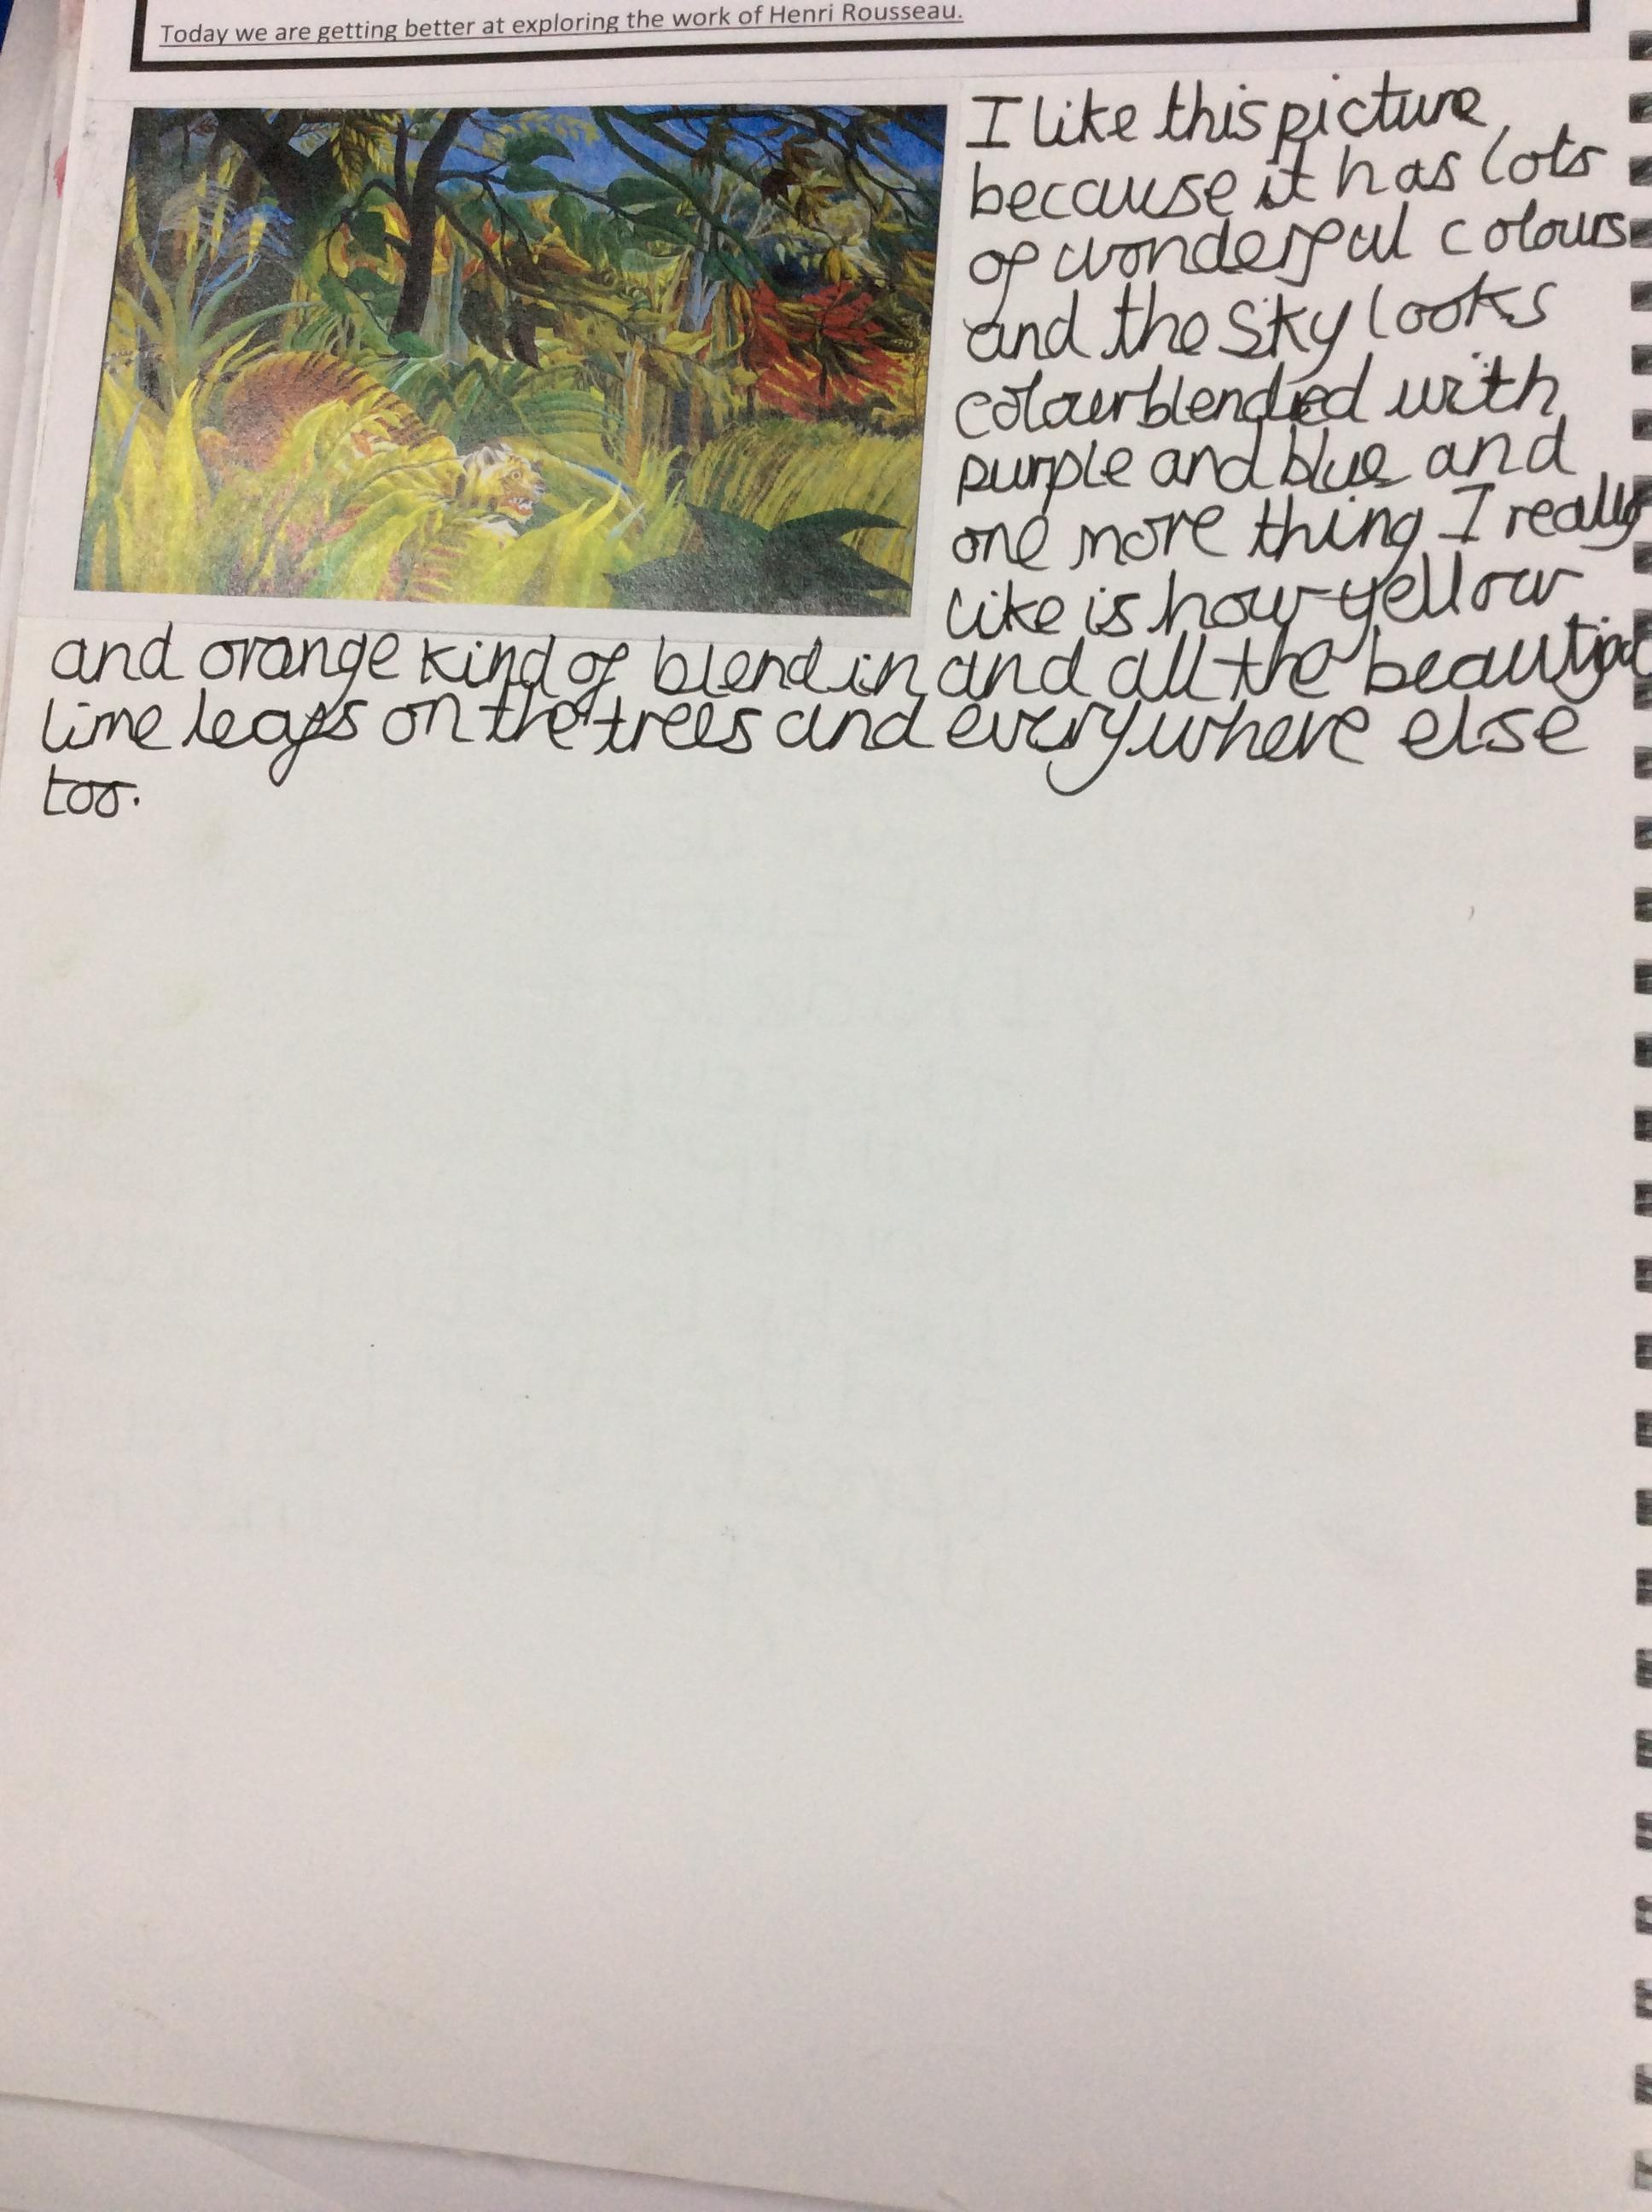 Today we are getting better at exploring the work of Henri Rousseau.
I like this picture
because it has lots
of wonderful colours
and the sky looks
colourblended with
purple and blue and
one more thing I really
like is how yellow
and orange kind of blend in and all the beautiful
lime leafs on the trees and everywhere else
too.